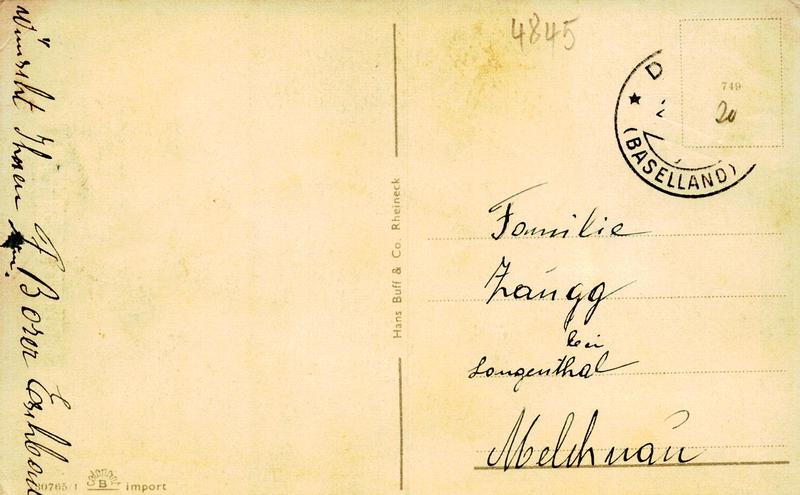 wünscht Ihnen F Borer
4845
749
20
D
★ (BASELLAND)
Hans Buff & Co. Rheineck
Familie
Zaugg
bei
Langenthal
Melchnau
30765/1 Colorprint B import